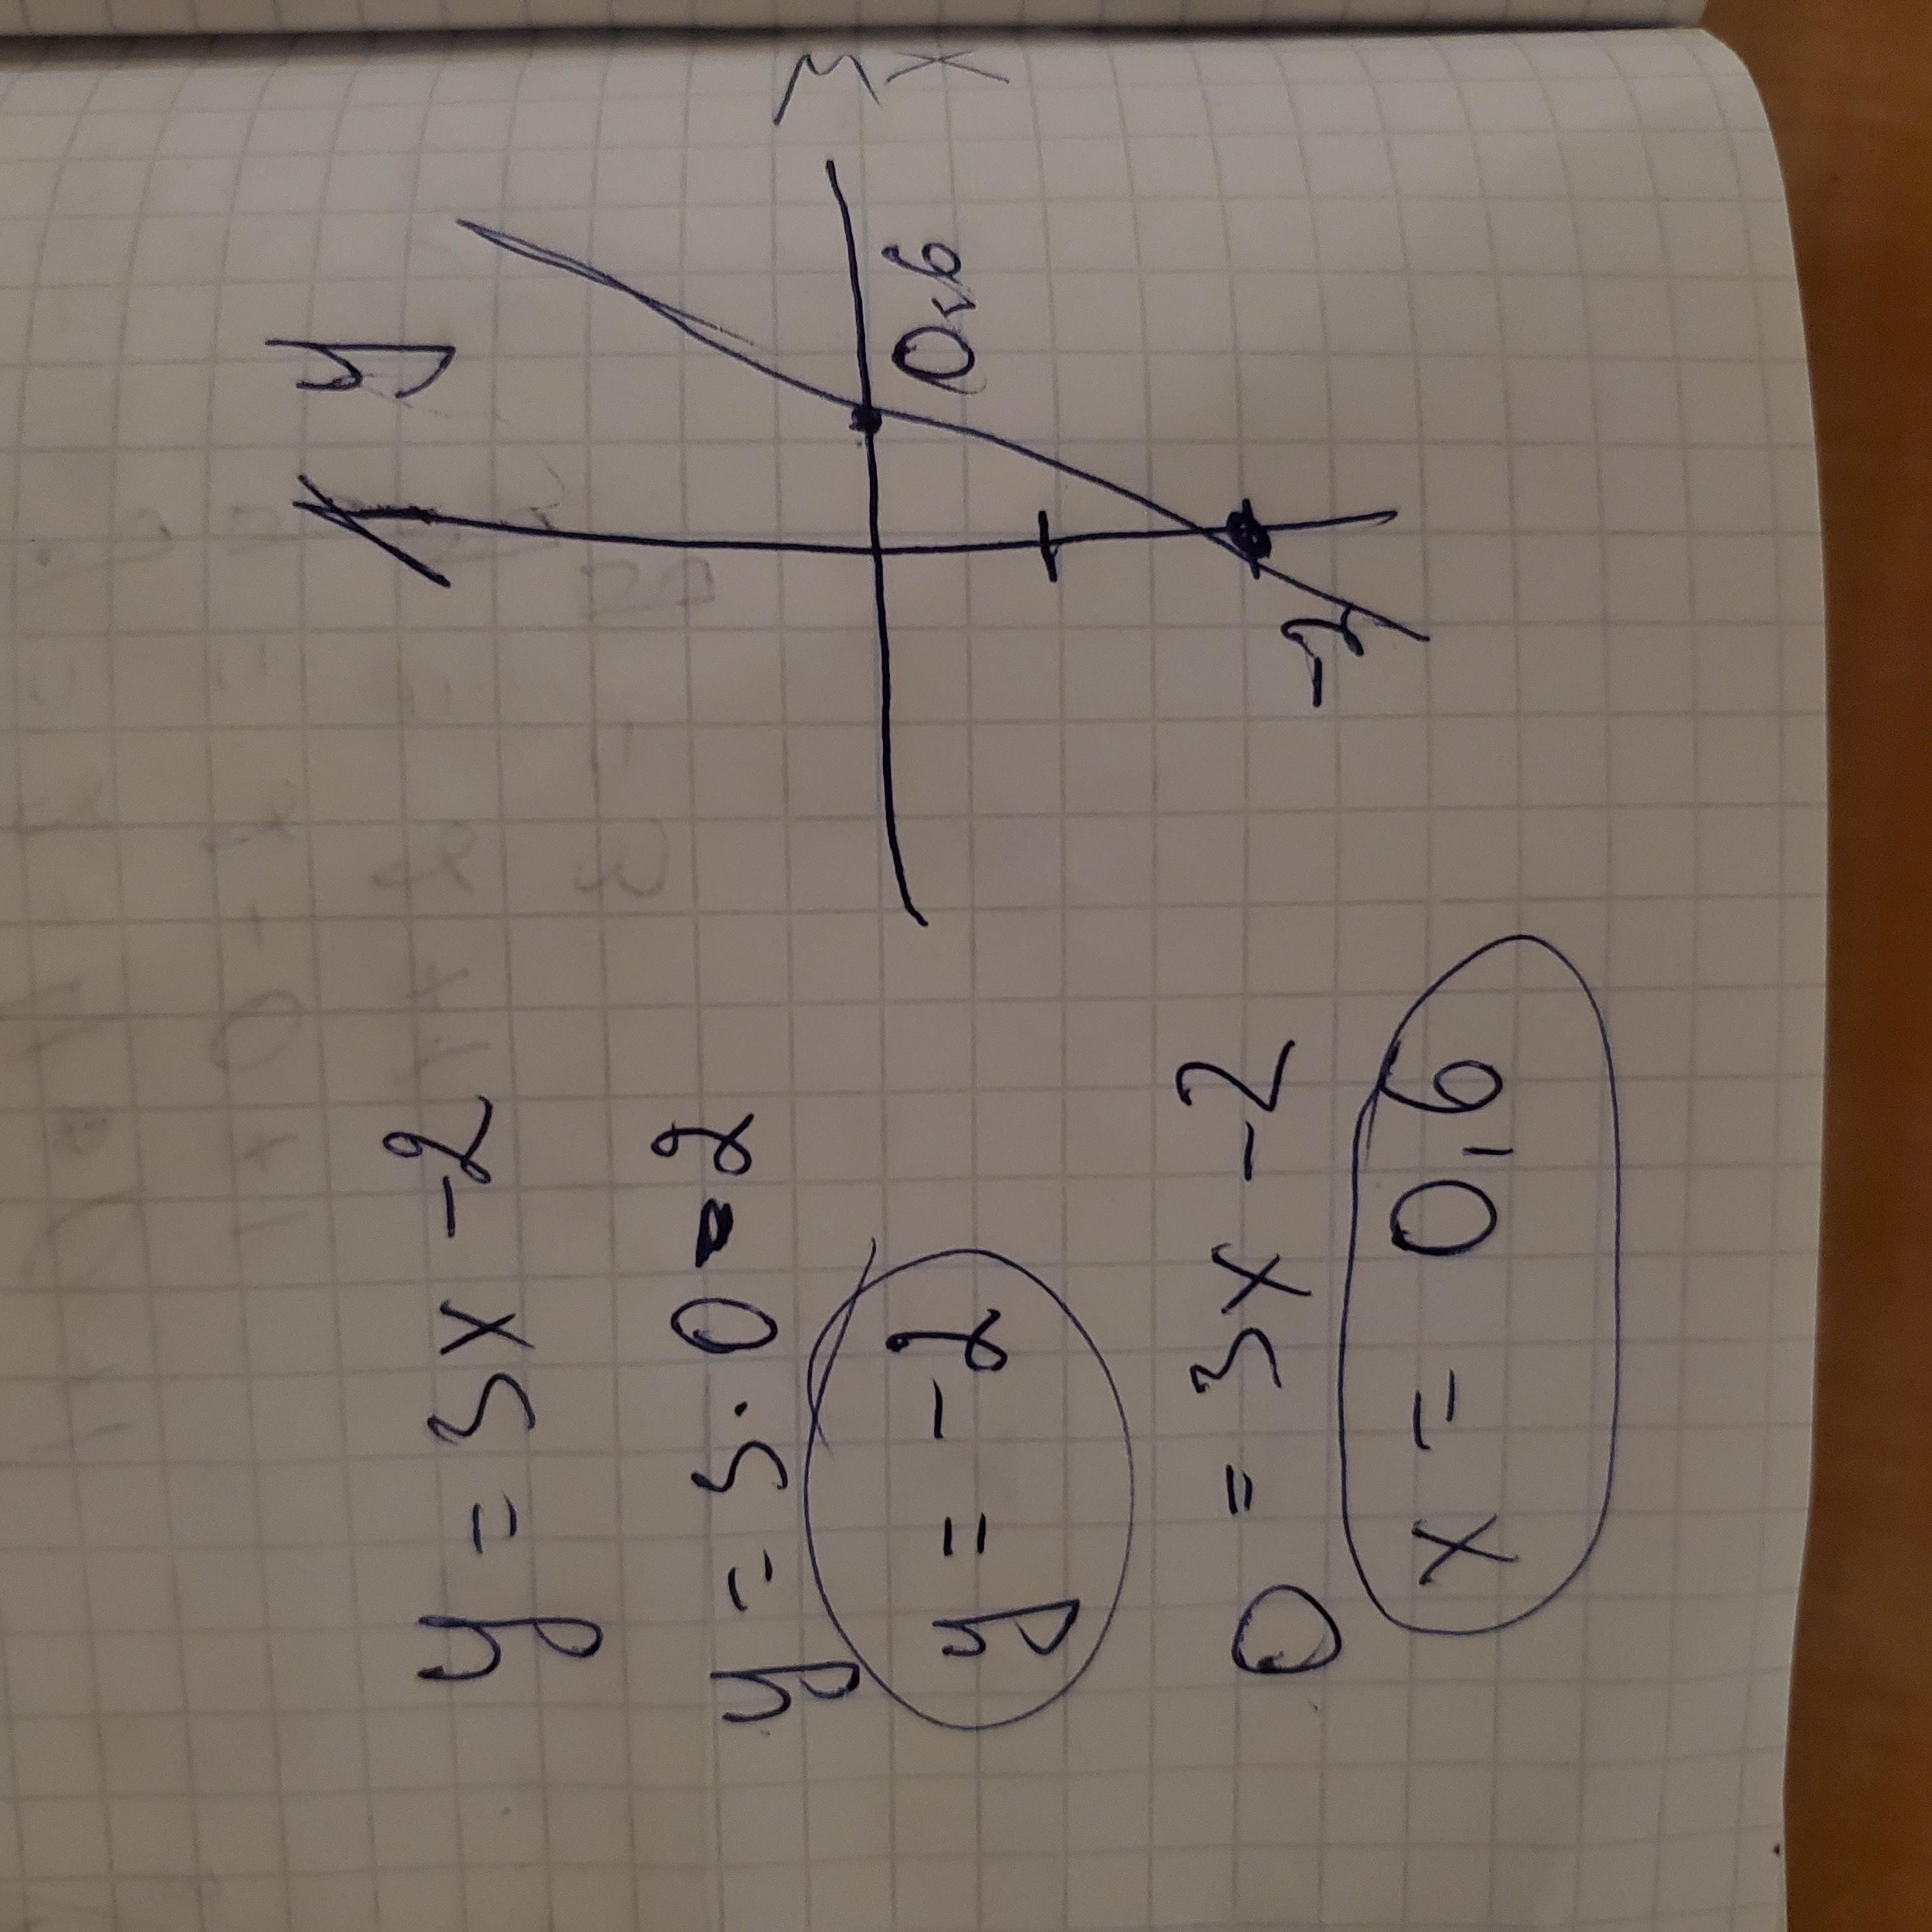 y = 3x - 2
y = 3·0-2
y = -2
0 = 3x - 2
x = 0,6
y
x
0,6
-2